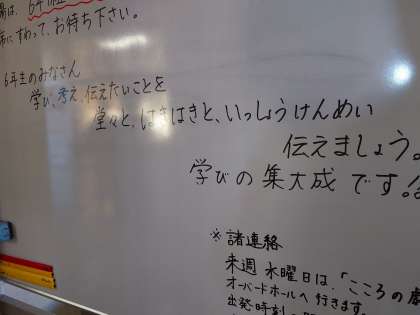 場は、6年
席にすわって、お待ち下さい。
6年生のみなさん
学び、考え、伝えたいことを
堂々と、はきはきと、いっしょうけんめい
伝えましょう。
学びの集大成です!
※諸連絡
来週 水曜日は、「こころの劇
オーバードホールへ 行きます。
出発時刻